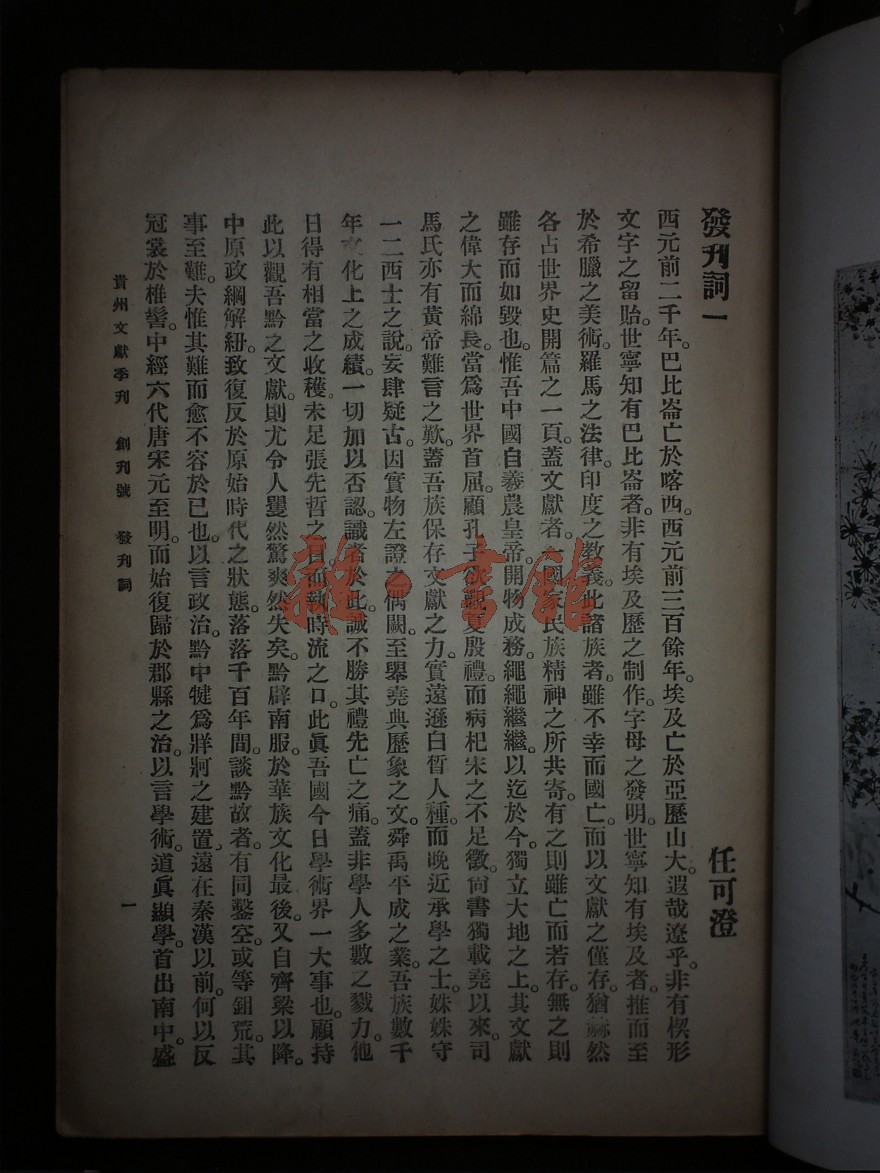 發刊詞一
任可澄
西元前二千年。巴比崙亡於喀西。西元前三百餘年。埃及亡於亞歷山大。遐哉遼乎。非有楔形
文字之留貽。世寧知有巴比崙者。非有埃及歷之制作。字母之發明。世寧知有埃及者。推而至
於希臘之美術。羅馬之法律。印度之教義。此諸族者。雖不幸而國亡。而以文獻之僅存。猶赫然
各占世界史開篇之一頁。蓋文獻者。國家民族精神之所共寄。有之則雖亡而若存。無之則
雖存而如毀也。惟吾中國自羲農皇帝。開物成務。繩繩繼繼。以迄於今。獨立大地之上。其文獻
之偉大而綿長。當爲世界首屈。顧孔子欲觀夏殷禮。而病杞宋之不足徵。尙書獨載堯以來。司
馬氏亦有黃帝難言之歎。蓋吾族保存文獻之力。實遠遜白晳人種。而晚近承學之士。姝姝守
一二西士之說。妄肆疑古。因實物左證之偶闕。至舉堯典歷象之文。舜禹平成之業。吾族數千
年文化上之成績。一切加以否認。識者於此。誠不勝其禮先亡之痛。蓋非學人多數之戮力。他
日得有相當之收穫。未足張先哲之目而執時流之口。此眞吾國今日學術界一大事也。顧持
此以觀吾黔之文獻。則尤令人矍然驚爽然失矣。黔辟南服。於華族文化最後。又自齊梁以降。
中原政綱解紐。致復反於原始時代之狀態。落落千百年間。談黔故者。有同鑿空。或等鉏荒。其
事至難。夫惟其難而愈不容於已也。以言政治。黔中犍爲牂牁之建置。遠在秦漢以前。何以反
冠裳於椎髻。中經六代唐宋元至明。而始復歸於郡縣之治。以言學術。道眞顯學。首出南中。盛
貴州文獻季刊 創刊號 發刊詞
一
雜·書館